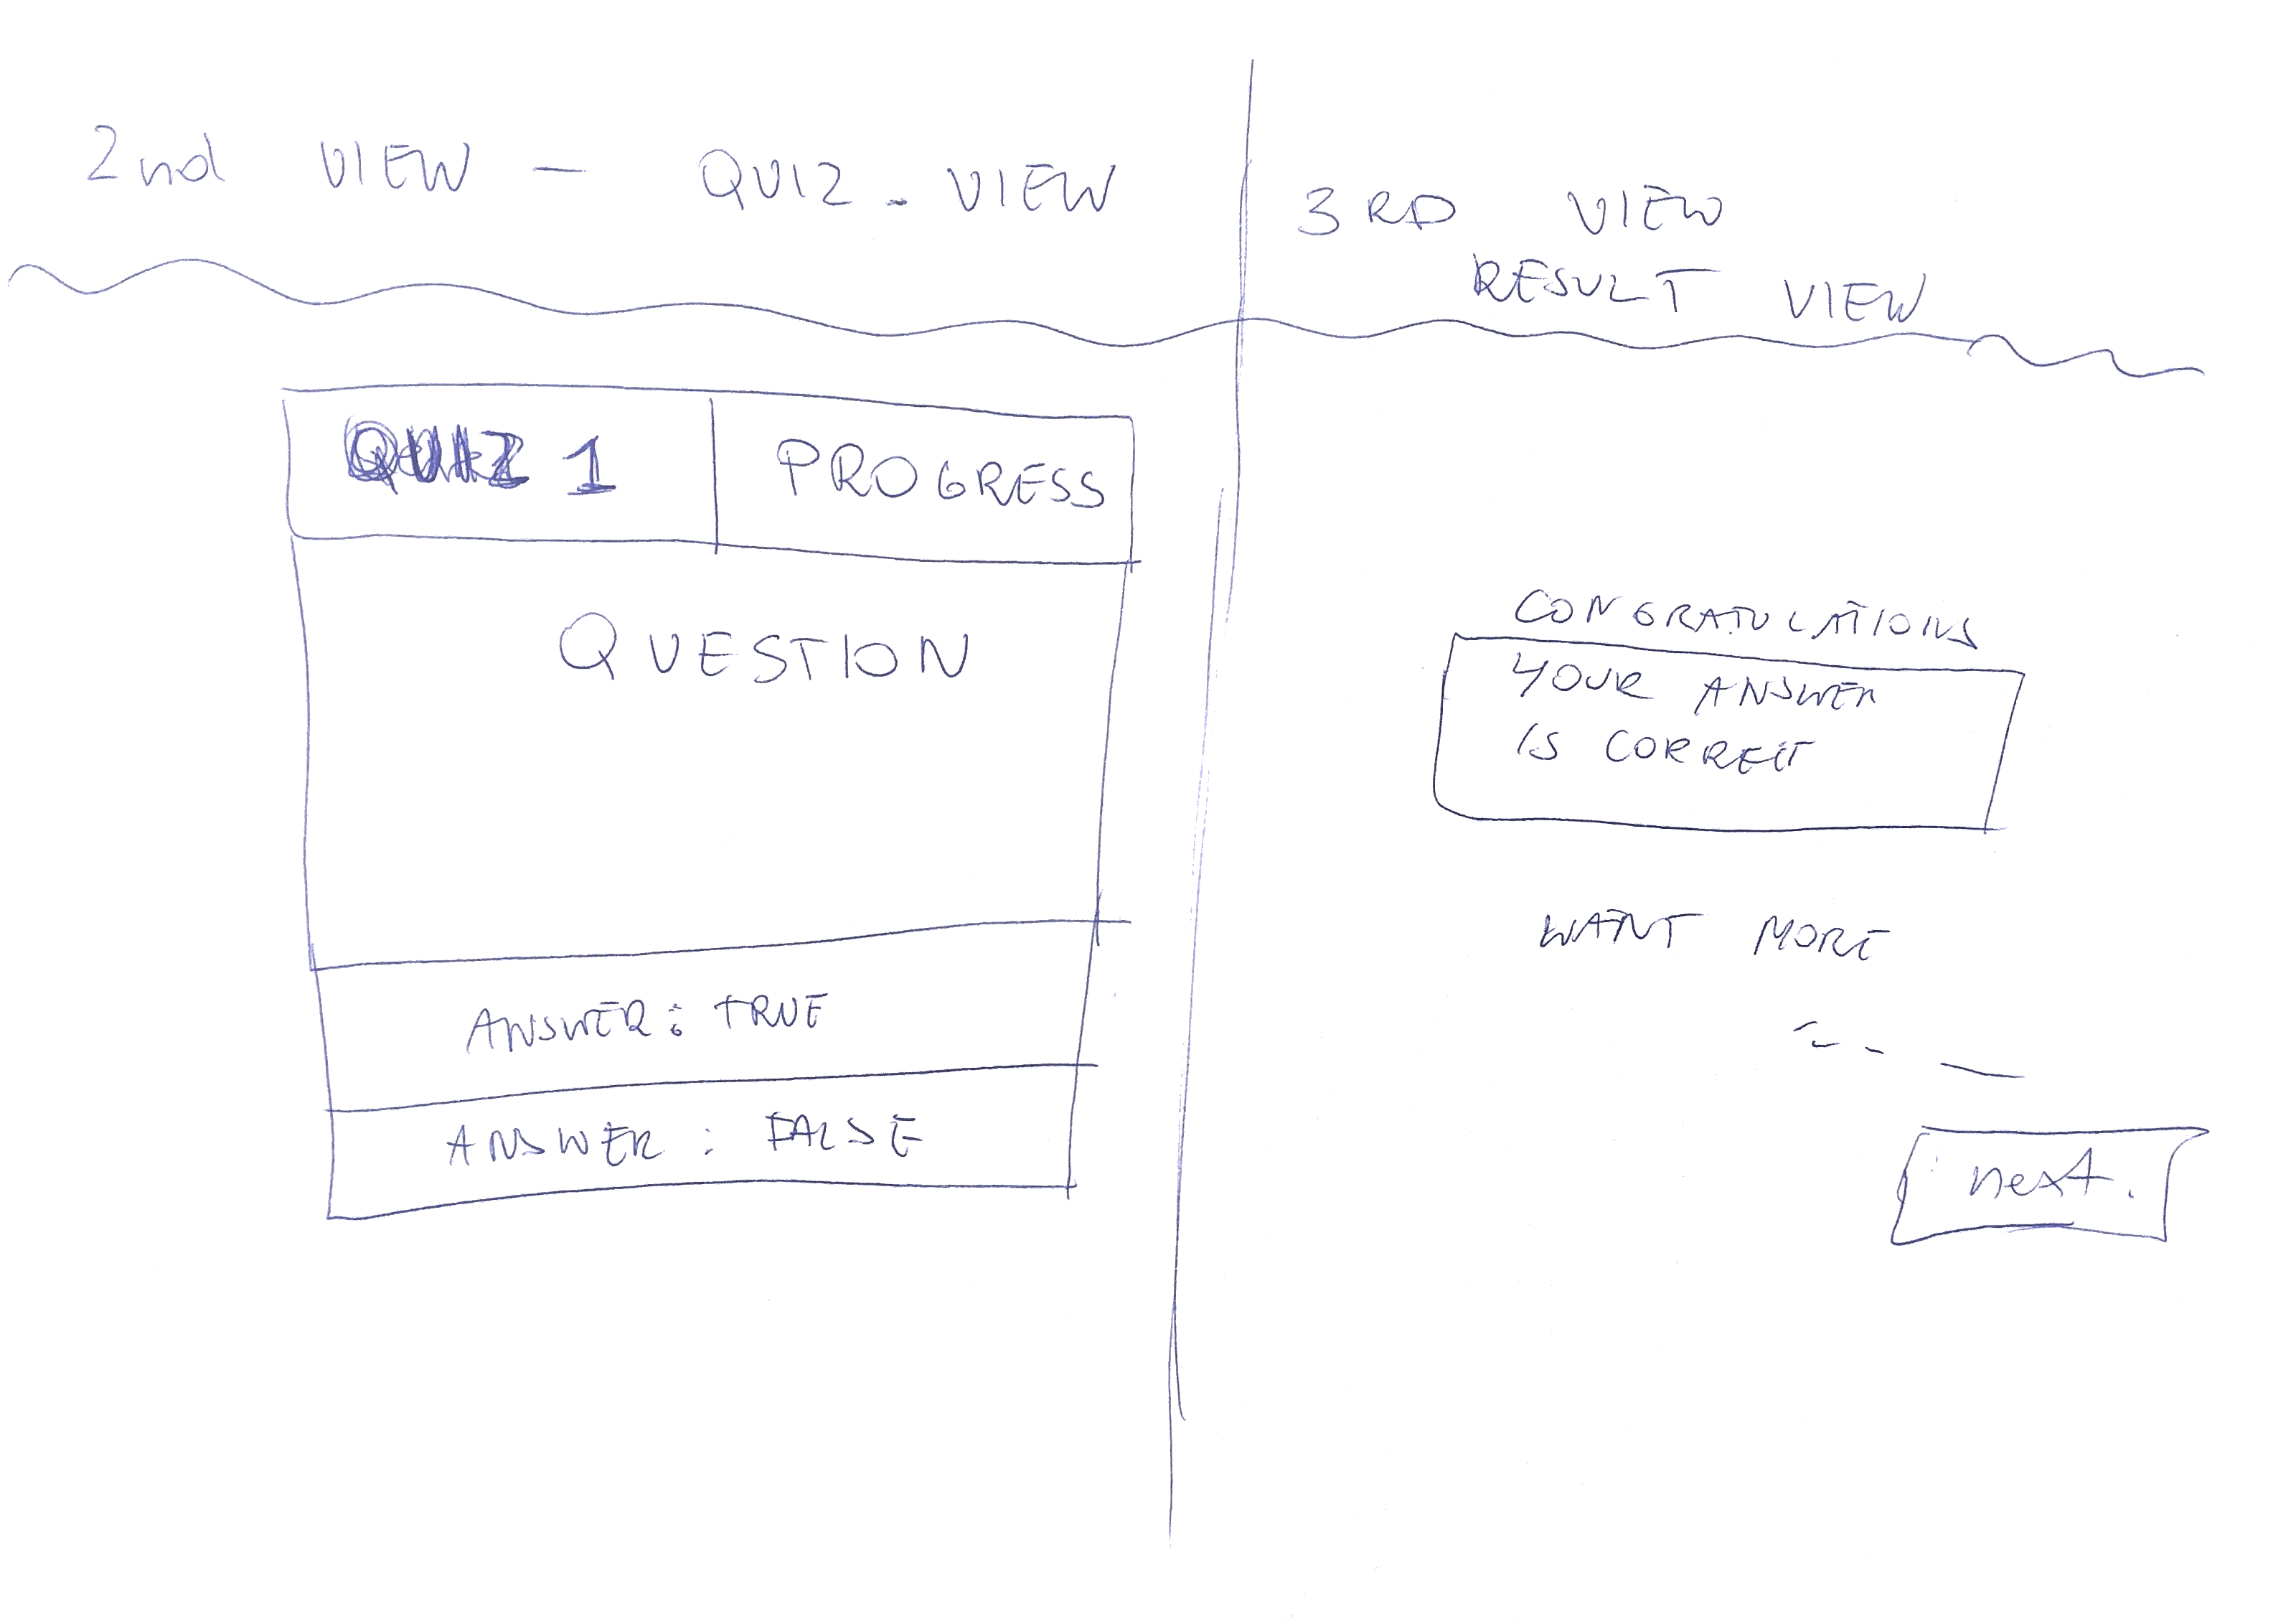 2nd VIEW - QUIZ_VIEW
QUIZ 1
PROGRESS
QUESTION
ANSWER: TRUE
ANSWER: FALSE
3RD VIEW
RESULT VIEW
CONGRATULATIONS
YOUR ANSWER
IS CORRECT
WANT MORE
next.